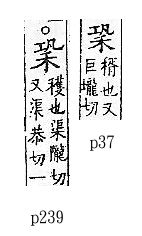 穫也渠隴切
又渠恭切一
p239
稍也又
巨壠切
p37